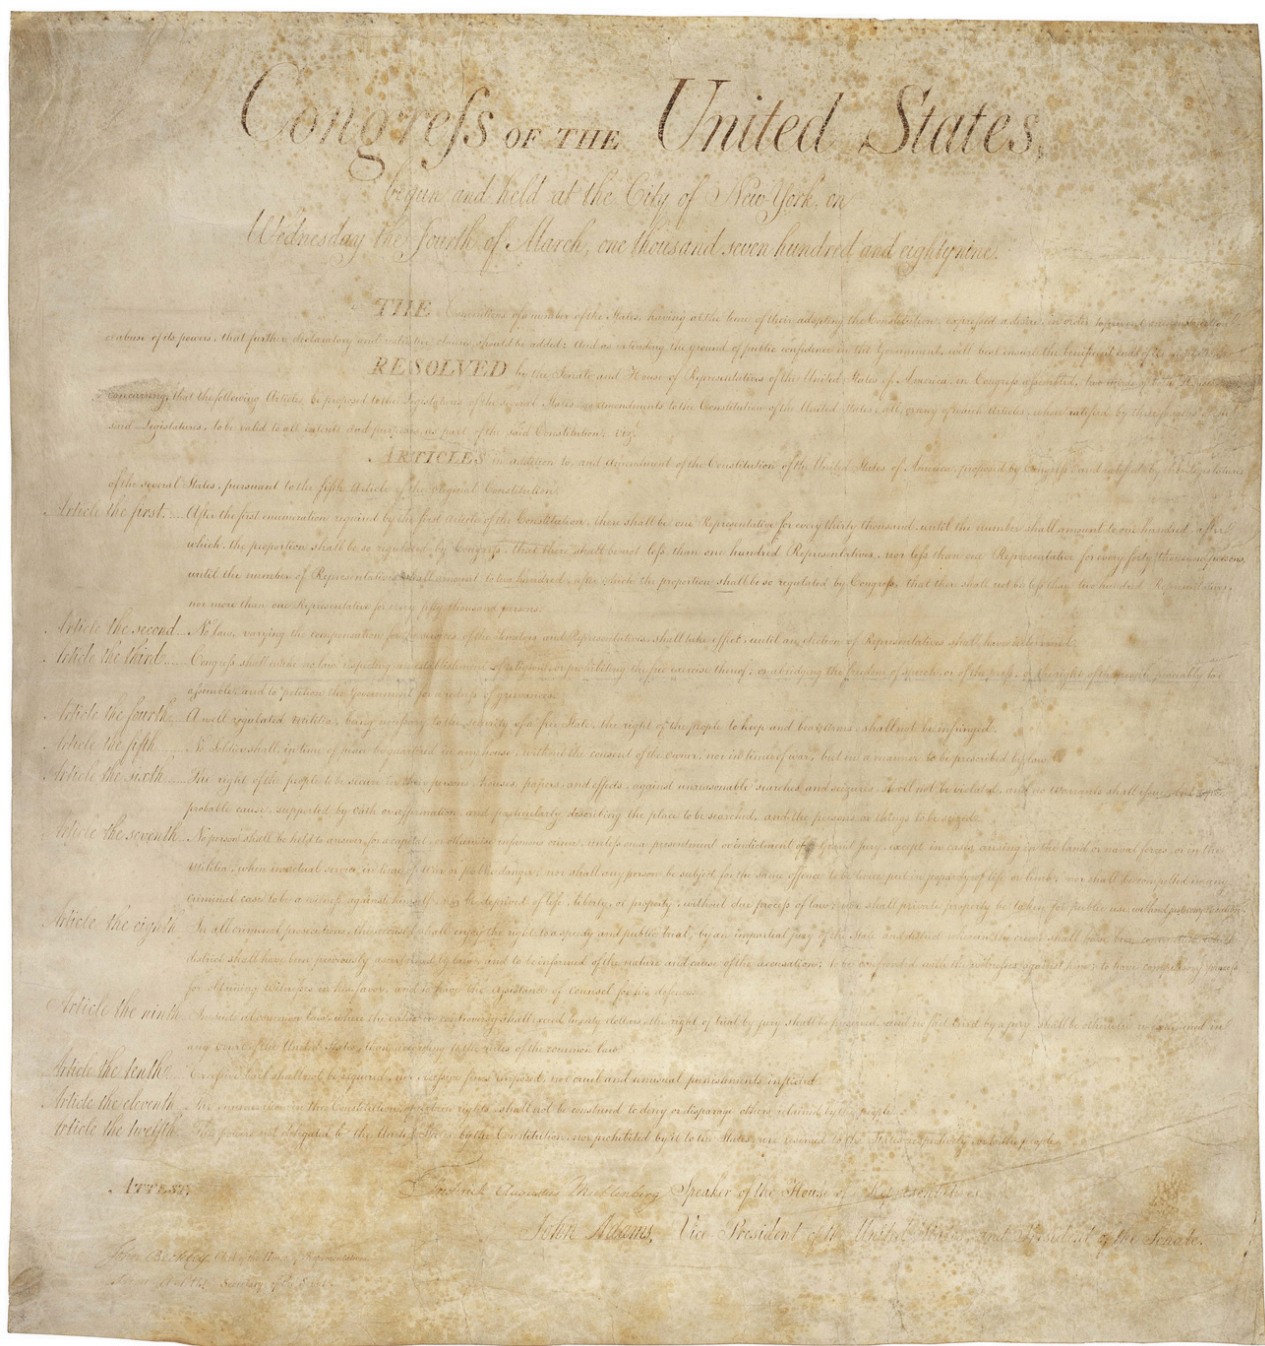 Congress OF THE United States,
begun and held at the City of New-York, on
Wednesday the fourth of March, one thousand seven hundred and eighty nine.
THE Conventions of a number of the States, having at the time of their adopting the Constitution, expressed a desire, in order to prevent
or abuse of its powers, that further declaratory and restrictive clauses should be added: And as extending the ground of public confidence in the Government, will best ensure the beneficent ends of its
RESOLVED by the Senate and House of Representatives of the United States of America, in Congress assembled, two
concurring, that the following Articles be proposed to the Legislatures of the several States, as amendments to the Constitution of the United States, all, or any of which Articles, when ratified by three fourths of the
said Legislatures, to be valid to all intents and purposes, as part of the said Constitution; viz.
ARTICLES in addition to, and Amendment of the Constitution of the United States of America, proposed by Congress, and ratified by the Legislatures
of the several States, pursuant to the fifth Article of the original Constitution.
Article the first.... After the first enumeration required by the first Article of the Constitution, there shall be one Representative for every thirty thousand, until the number shall amount to one hundred, after
which, the proportion shall be so regulated by Congress, that there shall be not less than one hundred Representatives, nor less than one Representative for every forty thousand persons,
until the number of Representatives shall amount to two hundred, after which the proportion shall be so regulated by Congress, that there shall not be less than two hundred Representatives,
nor more than one Representative for every fifty thousand persons.
Article the second... No law, varying the compensation for the services of the Senators and Representatives, shall take effect, until an election of Representatives shall have intervened.
Article the third...... Congress shall make no law respecting an establishment of religion, or prohibiting the free exercise thereof; or abridging the freedom of speech, or of the press; or the right of the people peaceably to
assemble, and to petition the Government for a redress of grievances.
Article the fourth.. A well regulated Militia, being necessary to the security of a free State, the right of the people to keep and bear Arms, shall not be infringed.
Article the fifth....... No Soldier shall, in time of peace be quartered in any house, without the consent of the owner, nor in time of war, but in a manner to be prescribed by law.
Article the sixth...... The right of the people to be secure in their persons, houses, papers, and effects, against unreasonable searches and seizures, shall not be violated, and no Warrants shall issue, but upon
probable cause, supported by oath or affirmation, and particularly describing the place to be searched, and the persons or things to be seized.
Article the seventh.. No person shall be held to answer for a capital, or otherwise infamous crime, unless on a presentment or indictment of a Grand Jury, except in cases arising in the land or naval forces, or in the
Militia, when in actual service in time of War or public danger; nor shall any person be subject for the same offence to be twice put in jeopardy of life or limb, nor shall be compelled in any
criminal case to be a witness against himself, nor be deprived of life, liberty, or property, without due process of law; nor shall private property be taken for public use, without just compensation.
Article the eighth. In all criminal prosecutions, the accused shall enjoy the right to a speedy and public trial, by an impartial jury of the State and district wherein the crime shall have been committed, which
district shall have been previously ascertained by law, and to be informed of the nature and cause of the accusation; to be confronted with the witnesses against him; to have compulsory process
for obtaining witnesses in his favor, and to have the assistance of counsel for his defence.
Article the ninth.. In suits at common law, where the value in controversy shall exceed twenty dollars, the right of trial by jury shall be preserved, and no fact tried by a jury, shall be otherwise re-examined in
any Court of the United States, than according to the rules of the common law.
Article the tenth.. Excessive bail shall not be required, nor excessive fines imposed, nor cruel and unusual punishments inflicted.
Article the eleventh. The enumeration in the Constitution, of certain rights, shall not be construed to deny or disparage others retained by the people.
Article the twelfth. The powers not delegated to the United States by the Constitution, nor prohibited by it to the States, are reserved to the States respectively, or to the people.
ATTEST,
Frederick Augustus Muhlenberg Speaker of the House of Representatives.
John Adams, Vice-President of the United States, and President of the Senate.
John Beckley, Clerk of the House of Representatives.
Secretary of the Senate.